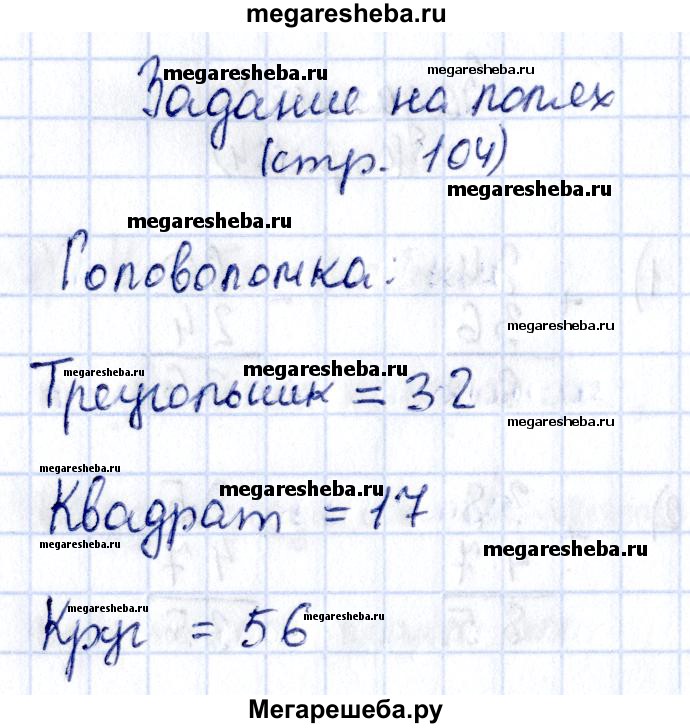 megaresheba.ru
megaresheba.ru megaresheba.ru
Задание на полях
(стр. 104)
megaresheba.ru
megaresheba.ru
Головоломка:
megaresheba.ru
megaresheba.ru megaresheba.ru
Треугольник = 32
megaresheba.ru
megaresheba.ru
megaresheba.ru
Квадрат = 17
megaresheba.ru
megaresheba.ru
megaresheba.ru
megaresheba.ru
Круг = 56
Мегарешеба.ру